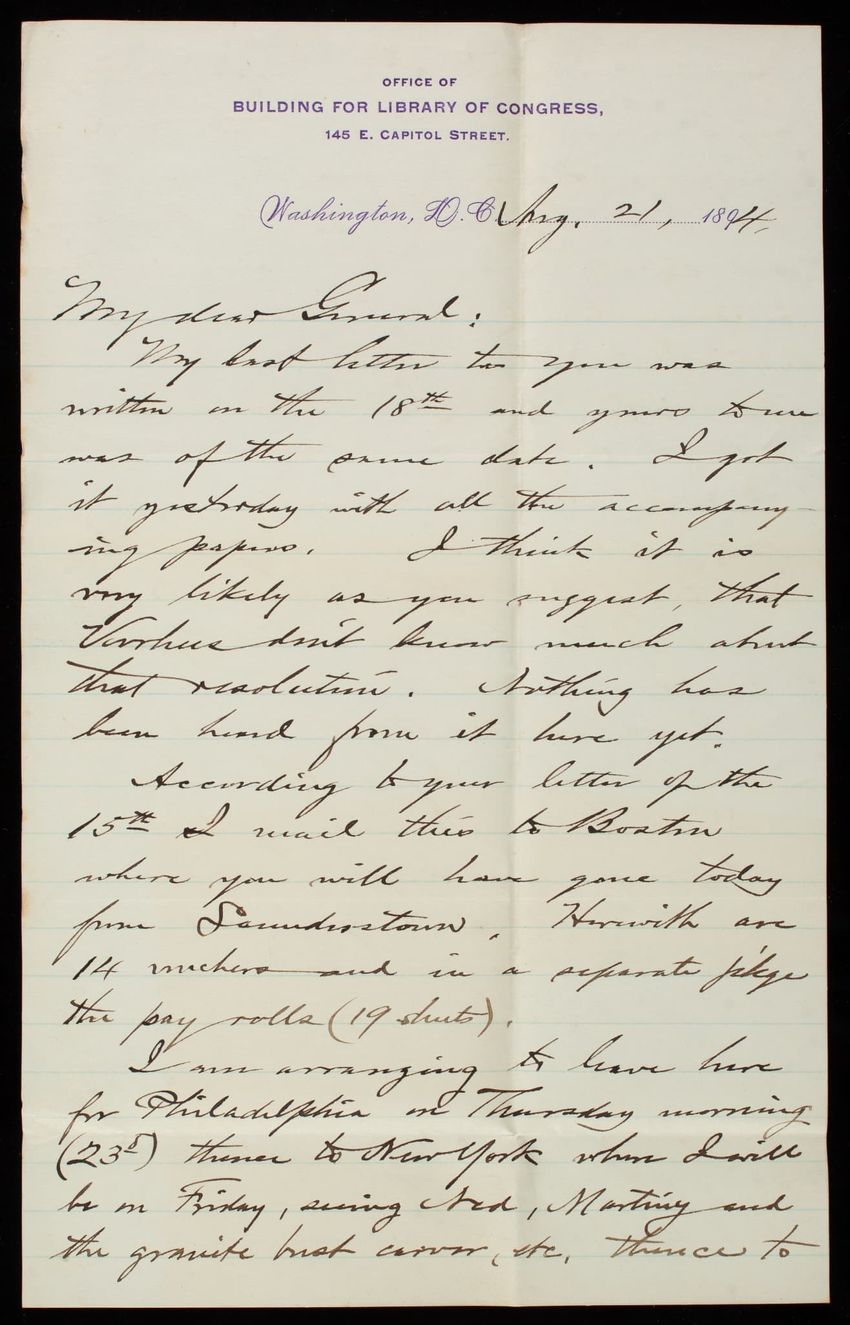 OFFICE OF
BUILDING FOR LIBRARY OF CONGRESS,
145 E. CAPITOL STREET.
Washington, D.C. Aug. 21, 1894.
My dear General:
My last letter to you was
written on the 18th and yours to me
was of the same date. I got
it yesterday with all the accompany-
ing papers. I think it is
very likely as you suggest, that
Voorhees don't know much about
that resolution. Nothing has
been heard from it here yet.
According to your letter of the
15th I mail this to Boston
where you will have gone today
from Saunderstown. Herewith are
14 vouchers and in a separate pkge
the pay rolls (19 sheets).
I am arranging to leave here
for Philadelphia on Thursday morning
(23d) thence to New York where I will
be on Friday, seeing Ned, Martiny and
the granite bust carver, etc. thence to